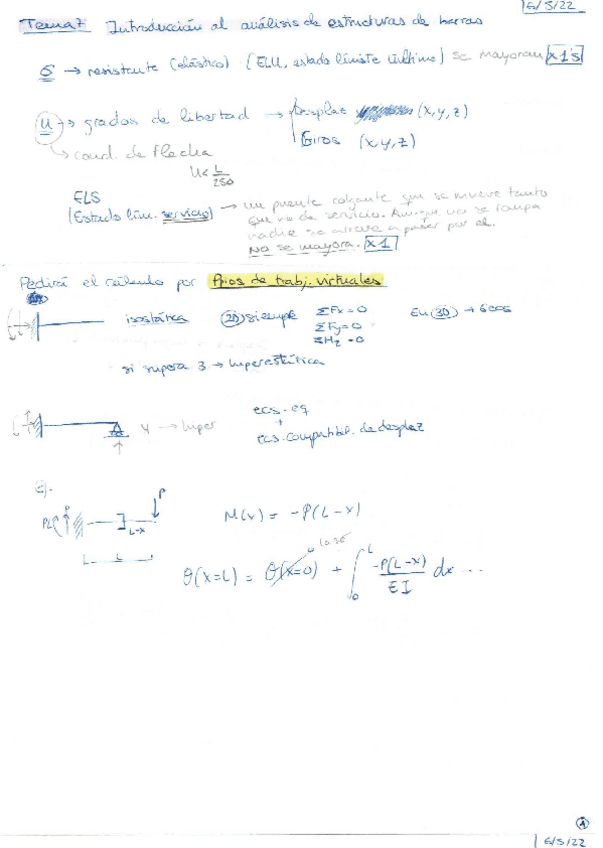 6/5/22
Tema 7 Introducción al análisis de estructuras de barras
σ → resistente (elástico) (ELU, estado límite último) se mayoran x1'5
u → grados de libertad → Desplaz (x, y, z)
Giros (x, y, z)
→ cond. de flecha
u < L/250
ELS
(Estado lím. servicio) → un puente colgante que se mueve tanto
que no da servicio. Aunque no se rompa
nadie se atreve a pasar por el.
No se mayora. x1
Pedirá el cálculo por Ppios de trabj. virtuales
isostática 2D siempre ΣFx = 0 En 3D → 6 ecs
ΣFy = 0
ΣMz = 0
si supera 3 → hiperestática
4 → hiper ecs. eq
+
ecs. compatibil. de desplaz
ej.
P
PL L-x M(x) = -P(L-x)
L
θ(x=L) = θ(x=0) + ∫₀ᴸ -P(L-x)/EI dx ...
6/5/22